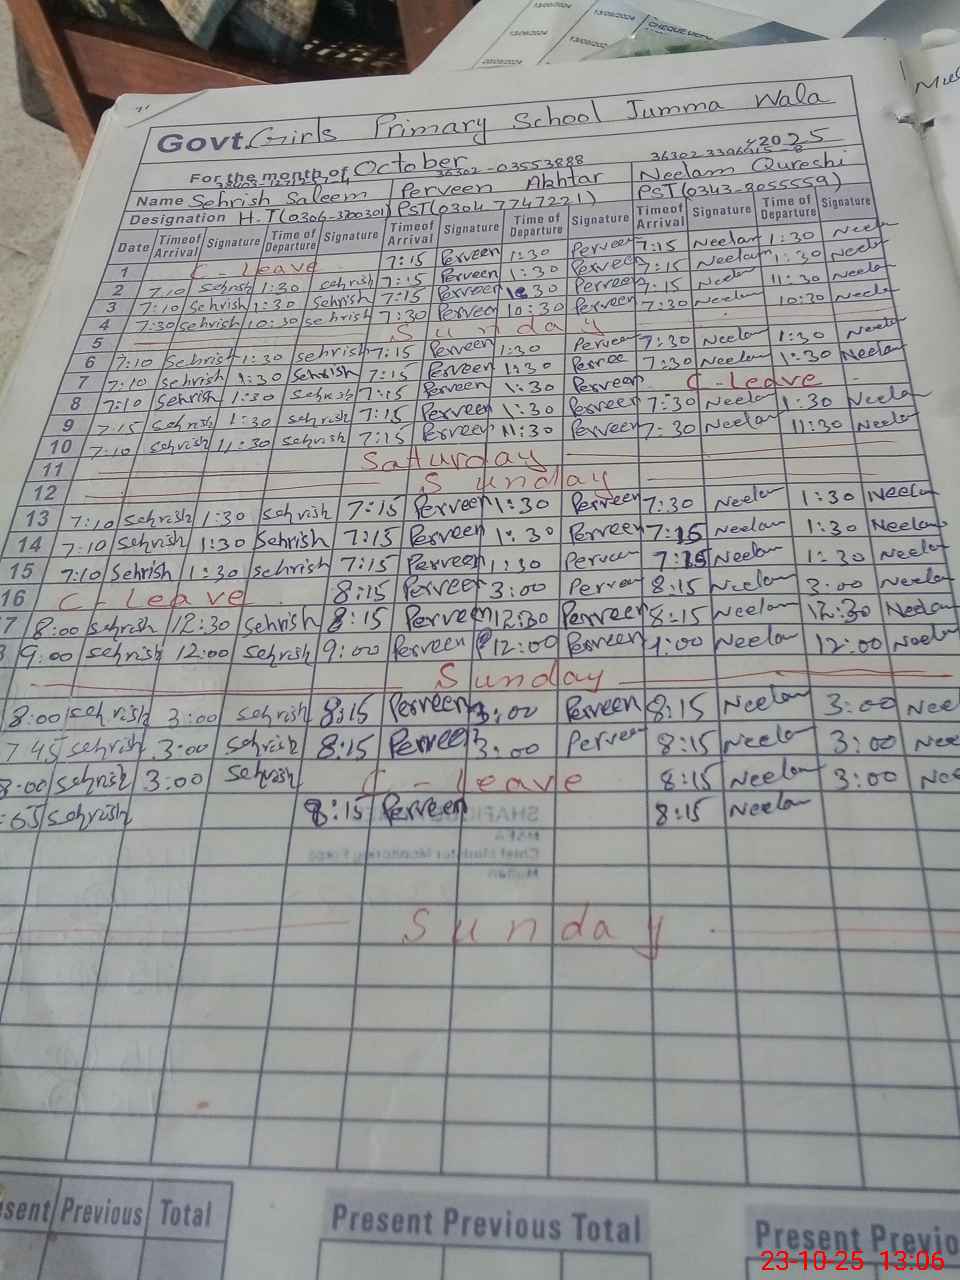 13/06/2024
13/06/2024
CHEQUE
13/06/2024
Govt. Girls Primary School Jumma Wala
For the month of October 2025
36302-03553888
Name Sehrish Saleem Perveen Akhtar Neelam Qureshi
Designation H.T PST(0304 7747221) PST(0343-8055559)
Date Time of Arrival Signature Time of Departure Signature Time of Arrival Signature Time of Departure Signature Time of Arrival Signature Time of Departure Signature
1 C-Leave 7:15 Perveen 1:30 Perveen 7:15 Neelam 1:30 Neelam
2 7:10 Sehrish 1:30 Sehrish 7:15 Perveen 1:30 Perveen 7:15 Neelam 1:30 Neelam
3 7:10 Sehrish 1:30 Sehrish 7:15 Perveen 30 Perveen 7:15 Neelam 11:30 Neelam
4 7:30 Sehrish 10:30 Sehrish 7:30 Perveen 10:30 Perveen 7:30 Neelam 10:30 Neelam
5 Sunday
6 7:10 Sehrish 1:30 Sehrish 7:15 Perveen 1:30 Perveen 7:30 Neelam 1:30 Neelam
7 7:10 Sehrish 1:30 Sehrish 7:15 Perveen 1:30 Pervee 7:30 Neelam 1:30 Neelam
8 7:10 Sehrish 1:30 Sehrish 7:15 Perveen 1:30 Perveen C-Leave
9 7:15 Sehrish 1:30 Sehrish 7:15 Perveen 1:30 Perveen 7:30 Neelam 1:30 Neelam
10 7:10 Sehrish 11:30 Sehrish 7:15 Perveen 11:30 Perveen 7:30 Neelam 11:30 Neelam
11 Satturday
12 Sunday
13 7:10 Sehrish 1:30 Sehrish 7:15 Perveen 1:30 Perveen 7:30 Neelam 1:30 Neelam
14 7:10 Sehrish 1:30 Sehrish 7:15 Perveen 1:30 Perveen 7:15 Neelam 1:30 Neelam
15 7:10 Sehrish 1:30 Sehrish 7:15 Perveen 1:30 Perveen 7:15 Neelam 1:30 Neelam
16 C-Leave 8:15 Perveen 3:00 Perveen 8:15 Neelam 3:00 Neelam
7 8:00 Sehrish 12:30 Sehrish 8:15 Perveen 12:30 Perveen 8:15 Neelam 12:30 Neelam
9:00 Sehrish 12:00 Sehrish 9:00 Perveen 12:00 Perveen 9:00 Neelam 12:00 Neelam
Sunday
8:00 Sehrish 3:00 Sehrish 8:15 Perveen 3:00 Perveen 8:15 Neelam 3:00 Nee
7 45 Sehrish 3:00 Sehrish 8:15 Perveen 3:00 Perveen 8:15 Neelam 3:00 Nee
8:00 Sehrish 3:00 Sehrish C-Leave 8:15 Neelam 3:00 Nee
Sehrish 8:15 Perveen 8:15 Neelam
Chief Minister Monitoring Force
Multan
Sunday
sent Previous Total
Present Previous Total
Present Previo
23-10-25 13:06